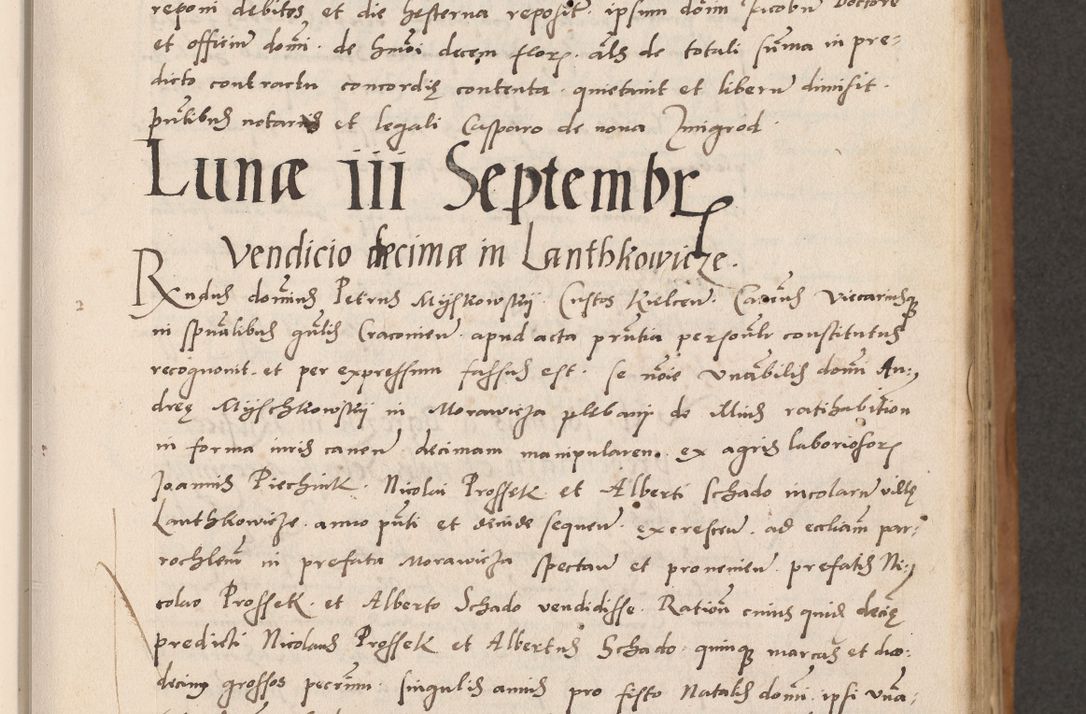 reponi debitos et die hesterna reposit. ipsum dom̃ Jacobũ Doctore
et officiũ domi̇. de hmõi decem flor. als de totali sũma in pre-
dicto contractu concordię contenta. quietavit et liberũ dimisit.
pñtibus notariis et legali Casparo de nova Zmigrod.
Lunæ iii Septembr
Vendicio decimæ in Lanthkowicze.
Rxndus dominus Petrus Mijskowskij. Custos Kielceñ. Cañcus Vicariusq
in spũalibus gñlis Cracovieñ. apud acta pñtia personalr constitutus
recognovit. et per expressum fassus est. se noĩe Venãbilis domi An-
dreę Mijschkowskij in Morawicza plebani de illius ratihabitioñ
in forma iuris caueñ decimam manipulareм. ex agris laboriosor
Joannis Piechnik. Nicolai Prossek et Alberti Schado incolarũ villę
Lanthkowicze. anno pñti et deinde sequeñ. excresceñ. ad eccliam par-
rochlem in prefata Morawicza spectañ et provenieñ. prefatis Ni-
colao Prossek. et Alberto Schado vendidisse. Ratioñ cuius quid decię
predicti Nicolaus Prossek et Albertus Schado. quinq marcas et duo-
decim grossos pecuñ. singulis annis pro festo Natalis domi. ipsi Vñã-